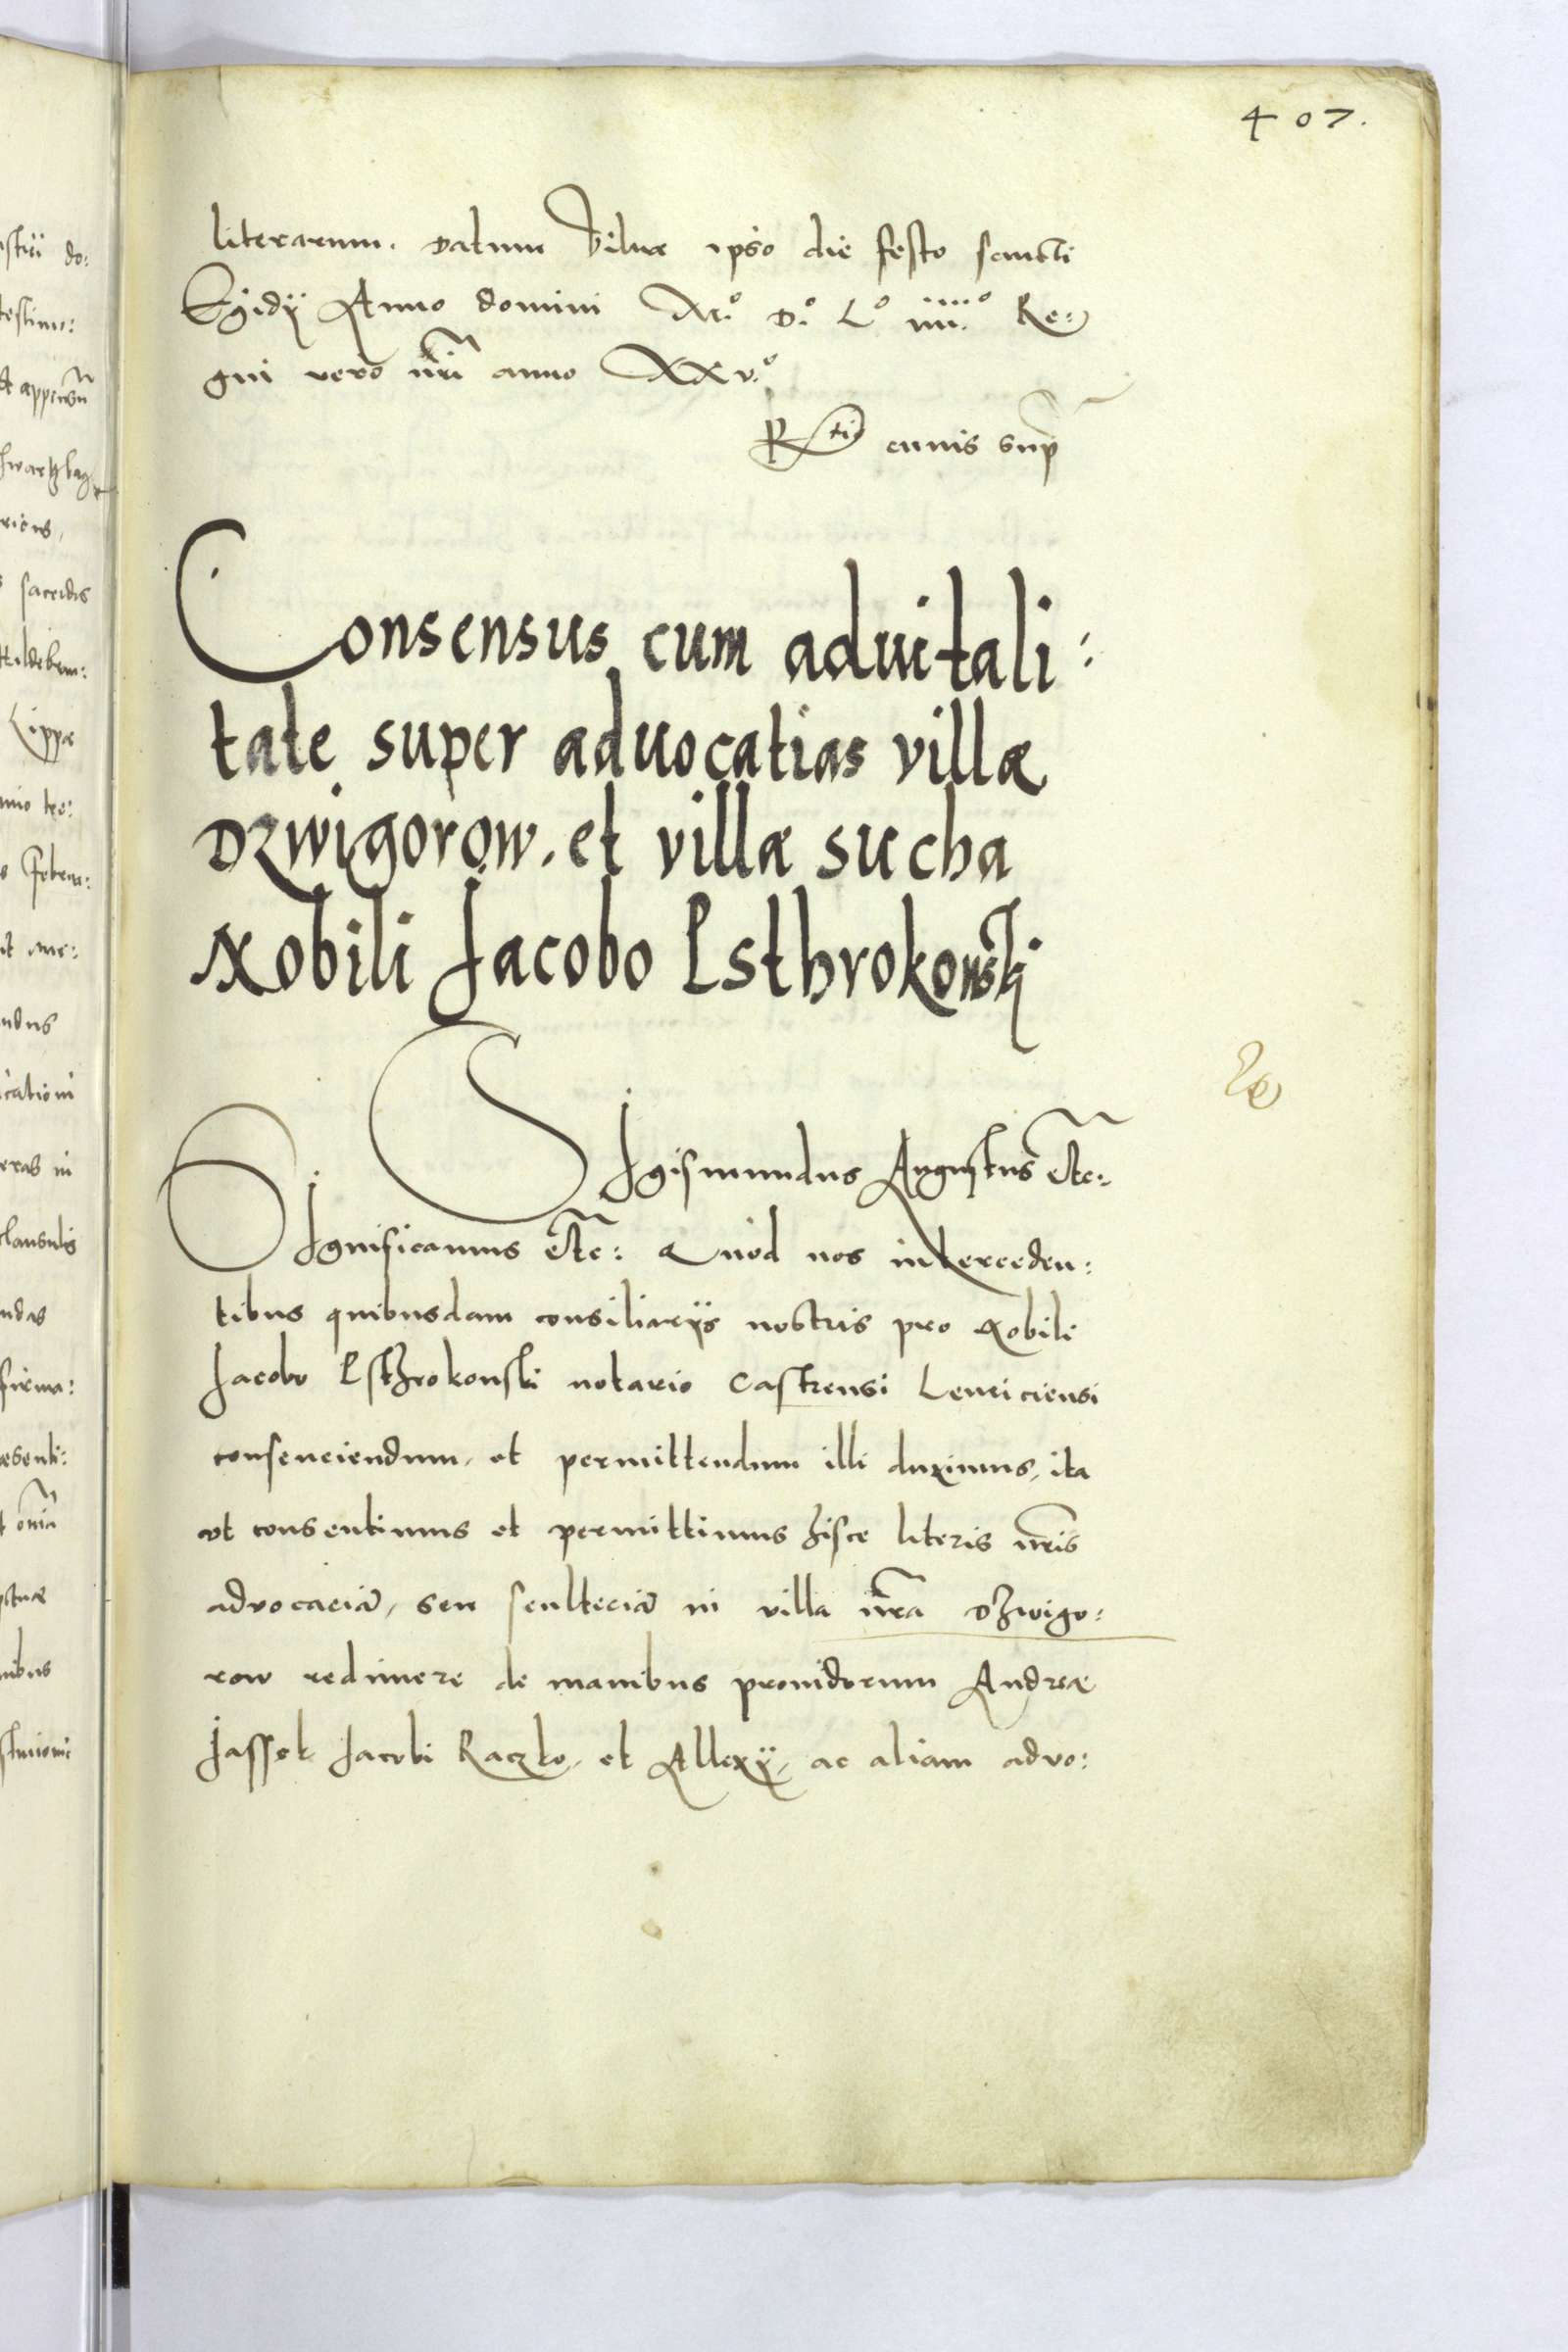 407.
literarum. Datum Vilnæ ipso die festo sancti
Egidij Anno domini M.° D.° L° iiii.° Re:
gni vero nrĩ anno XXV.°
R tio eiuus sup
Consensus cum aduitali:
tate super aduocatias villæ
Dzwigorow. et villæ sucha
Nobili Jacobo Osthrokowski
SIgismundus Augustus etc:
SIgnificamus etc: Quod nos interceden:
tibus quibusdam consiliarijs nostris pro Nobili
Jacobo Osthrokonski notario Castrensi Lenciciensi
consenciendum, et permittendum illi duximus, ita
vt consentimus et permittimus hisce literis nrĩs
advocaciã, seu sculteciã in villa nrã Dzwigo:
row redimere de manibus providorum Andreæ
Jassek Jacobi Raczko, et Allexij, ac aliam advo: